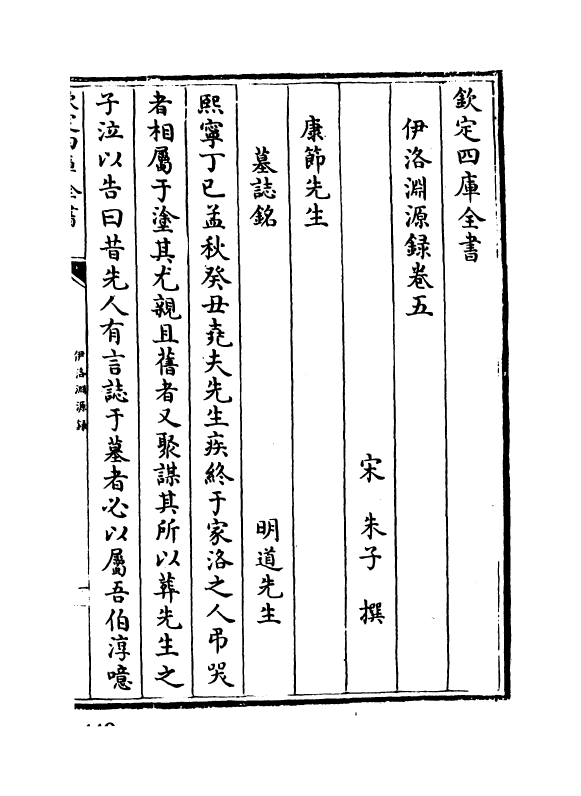 欽定四庫全書
伊洛淵源録卷五
宋 朱子 撰
康節先生
墓誌銘 明道先生
熙寧丁巳孟秋癸丑堯夫先生疾終于家洛之人弔哭
者相屬于塗其尤親且舊者又聚謀其所以葬先生之
子泣以告曰昔先人有言誌于墓者必以屬吾伯淳噫
伊洛淵源録
一